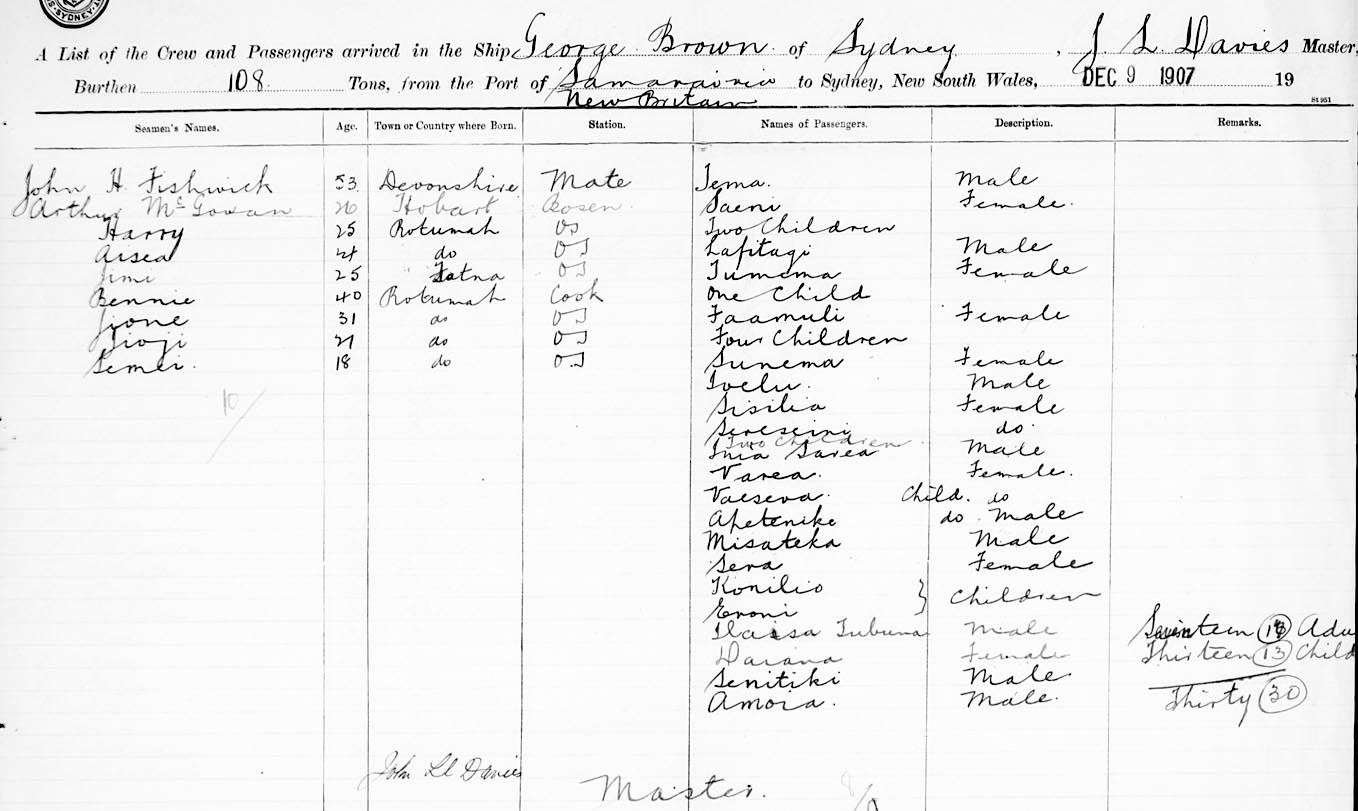 SYDNEY
A List of the Crew and Passengers arrived in the Ship George Brown of Sydney, J L Davies Master,
Burthen 108 Tons, from the Port of Samarai via to Sydney, New South Wales, DEC 9 1907 19
New Britain
Seamen's Names. Age. Town or Country where Born. Station. Names of Passengers. Description. Remarks.
John H Fishwick 53 Devonshire Mate Jema. Male
Arthur McGowan 26 Hobart Bosen. Saeni Female.
Harry 25 Rotumah OS Two Children
Aisea do OS Lafitagi Male
Jimi 25 " Fotna OS Tumema Female
Bennie 40 Rotumah Cook One Child
Jione 31 do OS Faamuli Female
do OS Four Children
Semei. 18 do O.S Sunema Female
10 Ivelu. Male
Sisilia Female
Sereseini do.
Two Children
Inia Sarea Male
Varea. Female.
Vaeseva. Child. do
Apetenike do Male
Misateka Male
Sera Female
Konilio } Children
Eroni
Tubuna Male Seventeen Adu
Daiana Female Thirteen (13) Child
Senitiki Male
Amoia. Male. Thirty (30)
John Ll Davies
Master.